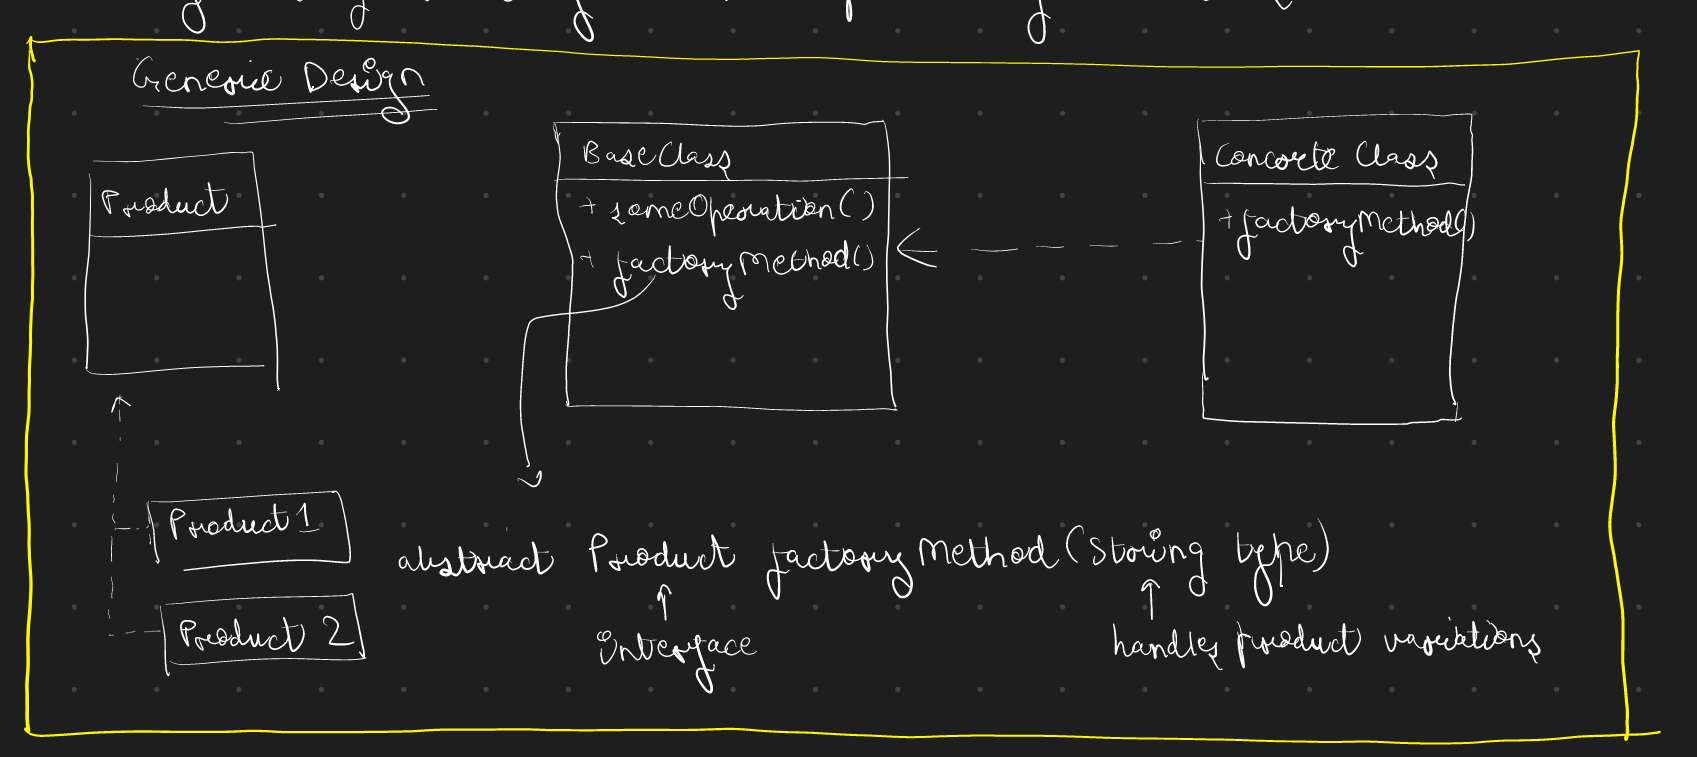 Generic Design
Product
BaseClass
+ someOperation()
+ factoryMethod()
Concrete Class
+ factoryMethod()
Product 1
Product 2
abstract Product factoryMethod(String type)
interface
handles product variations